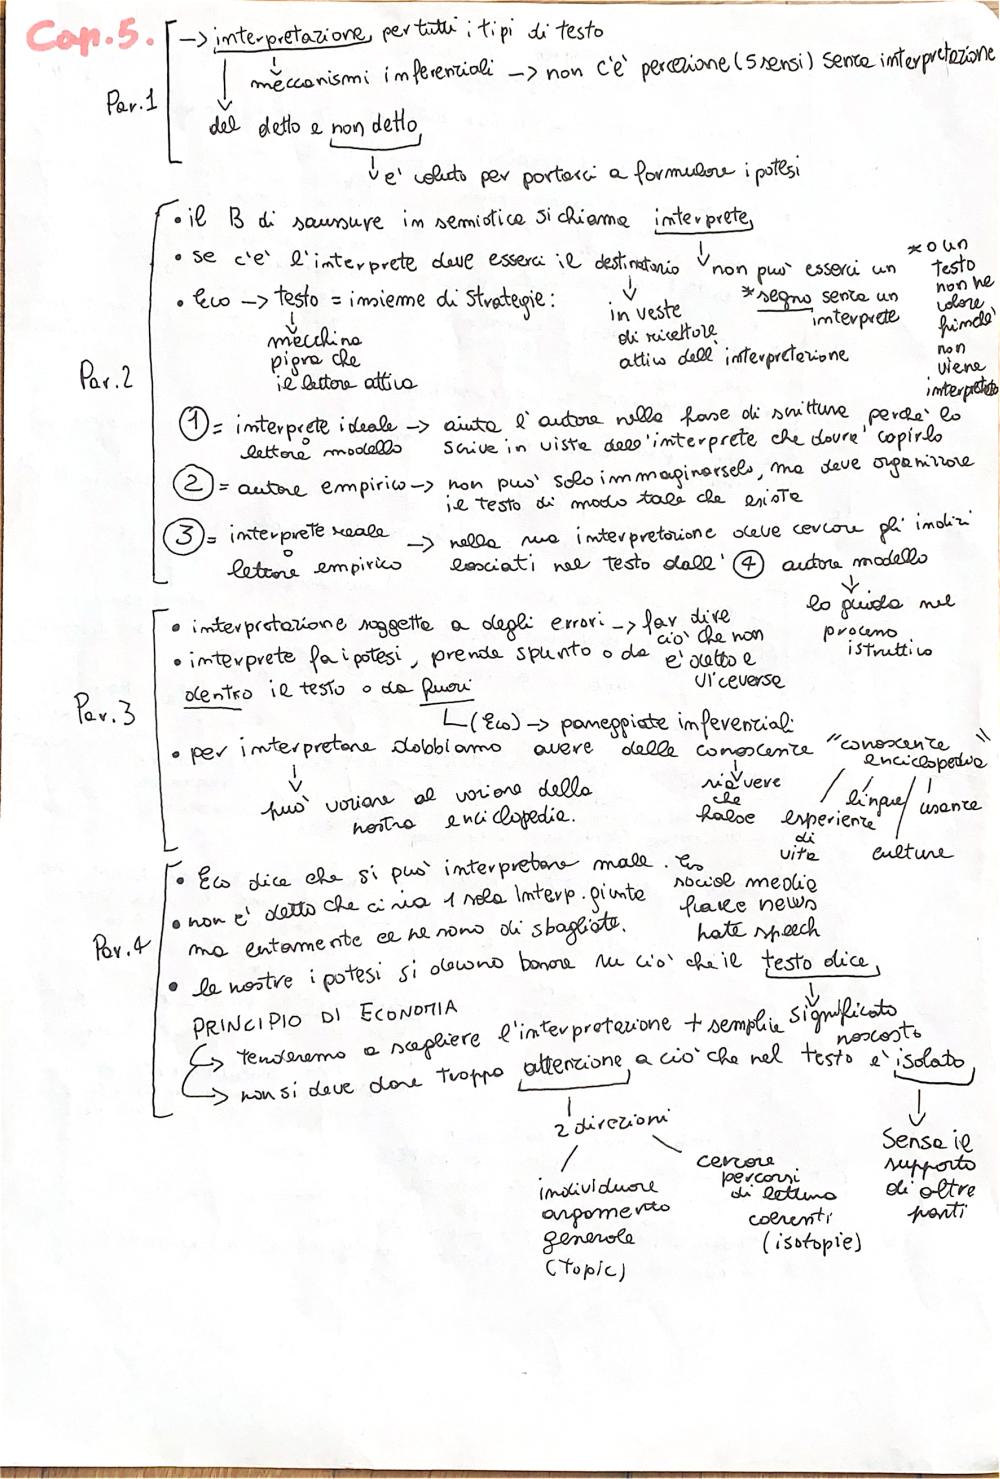 Cap. 5.
Par.1
→ interpretazione per tutti i tipi di testo
meccanismi inferenziali → non c'è percezione (5 sensi) senza interpretazione
del detto e non detto
è voluto per portarci a formulare ipotesi
Par.2
• il B di saussure in semiotica si chiama interprete
• se c'è l'interprete deve esserci il destinatario
non può esserci un
*segno senza un
interprete
*o un
testo
non ha
valore
finché
non
viene
interpretato
in veste
di ricettore
attivo dell'interpretazione
• Eco → testo = insieme di strategie:
macchina
pigra che
il lettore attiva
① = interprete ideale → aiuta l'autore nella fase di scrittura perché lo
o lettore modello scrive in vista dell'interprete che dovrà capirlo
② = autore empirico → non può solo immaginarselo, ma deve organizzare
il testo di modo tale che esista
③ = interprete reale → nella sua interpretazione deve cercare gli indizi
o lettore empirico lasciati nel testo dall' ④ autore modello
lo guida nel
processo
istruttivo
Par.3
• interpretazione soggetta a degli errori → far dire
ciò che non
è detto e
viceversa
• interprete fa ipotesi, prende spunto o da
dentro il testo o da fuori
(Eco) → passeggiate inferenziali
• per interpretare dobbiamo avere delle conoscenze "conoscenze
enciclopedia"
può variare al variare della
nostra enciclopedia.
vere
che
false
esperienze
di
vita
lingue
culture
usanze
Par.4
• Eco dice che si può interpretare male. Es
social media
fake news
hate speech
• non è detto che ci sia 1 sola Interp. giusta
ma certamente ce ne sono di sbagliate.
• le nostre ipotesi si devono basare su ciò che il testo dice
significato
nascosto
PRINCIPIO DI ECONOMIA
→ tenderemo a scegliere l'interpretazione + semplice
→ non si deve dare troppa attenzione a ciò che nel testo è isolato
2 direzioni
individuare
argomento
generale
(topic)
cercare
percorsi
di lettura
coerenti
(isotopie)
Senza il
supporto
di altre
parti